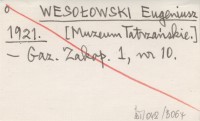 WESOŁOWSKI Eugeniusz
1921. [Muzeum Tatrzańskie.]
— Gaz. Zakop. 1, nr 10.